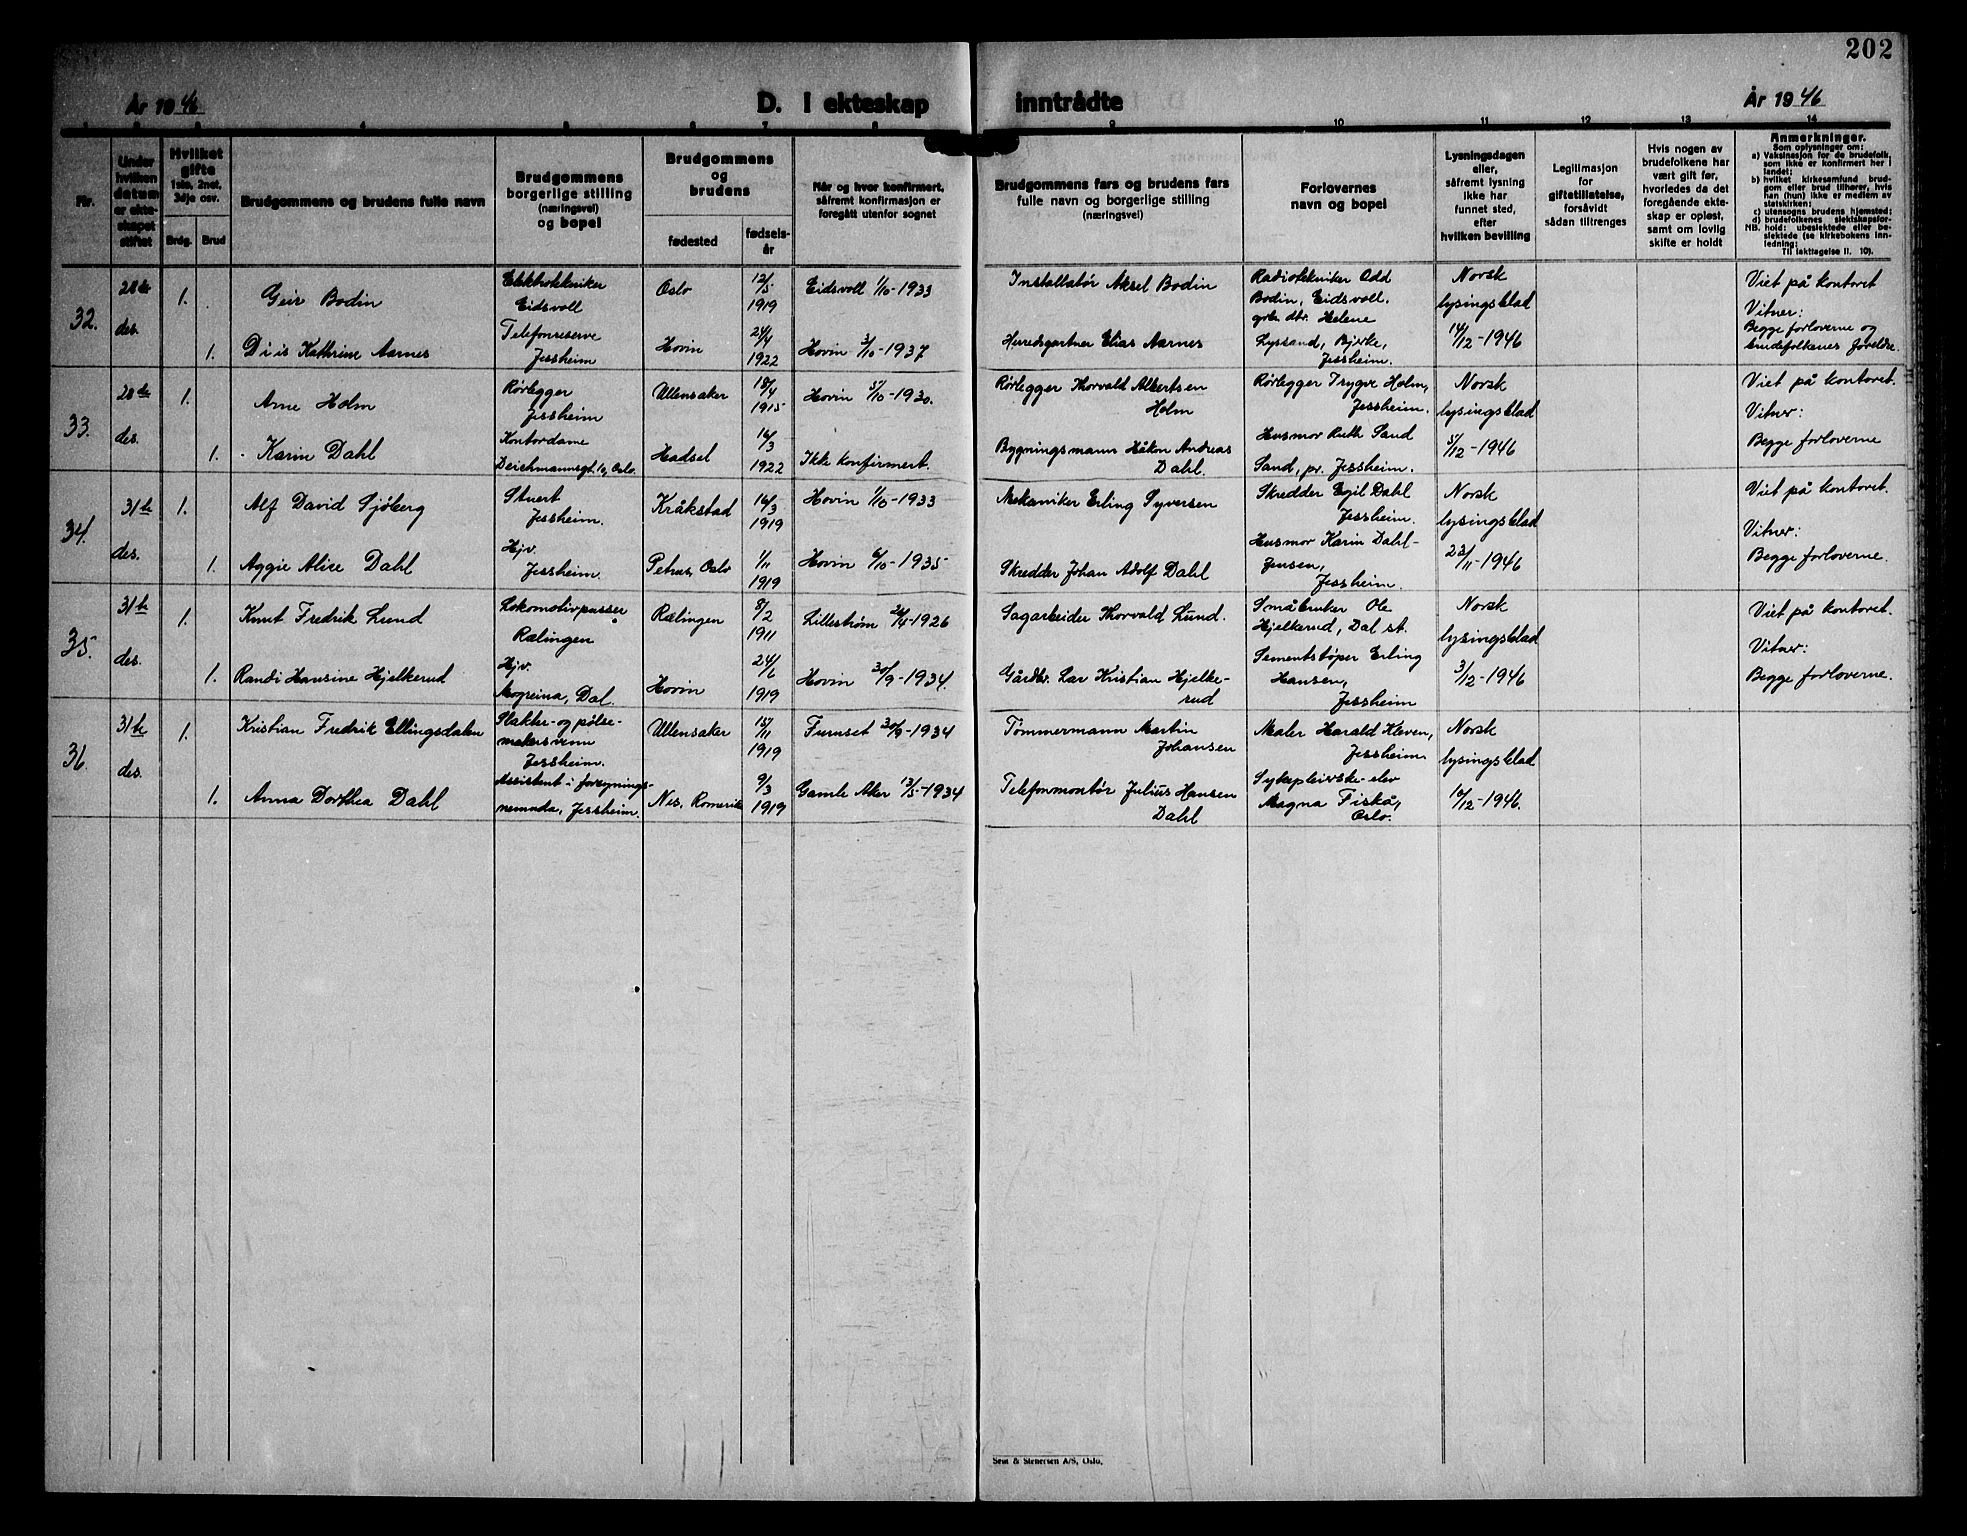 202
År 1946 D. I ekteskap inntrådte År 1946
1 2 3 4 5 6 7 8 9 10 11 12 13 14
Nr.
Under
hvilken
datum
er ekte-
skapet
stiftet
Hvilket
gifte
1ste, 2net,
3dje osv.
Brdg. Brud
Brudgommens og brudens fulle navn
Brudgommens
borgerlige stilling
(næringsvei)
og bopel
Brudgommens
og
brudens
fødested
fødsels-
år
Når og hvor konfirmert,
såfremt konfirmasjon er
foregått utenfor sognet
Brudgommens fars og brudens fars
fulle navn og borgerlige stilling
(næringsvei)
Forlovernes
navn og bopel
Lysningsdagen
eller,
såfremt lysning
ikke har
funnet sted,
efter
hvilken bevilling
Legitimasjon
for
giftetillatelse,
forsåvidt
sådan tiltrenges
Hvis nogen av
brudefolkene har
vært gift før,
hvorledes da det
foregående ekte-
skap er opløst,
samt om lovlig
skifte er holdt
Anmerkninger.
Som oplysninger om:
a) Vaksinasjon for de brudefolk,
som ikke er konfirmert her i
landet;
b) hvilket kirkesamfund brud-
gom eller brud tilhører, hvis
han (hun) ikke er medlem av
statskirken;
c) utensogns brudens hjemsted;
d) brudefolkenes slektskapsfor-
hold: ubeslektede eller be-
slektede (se kirkebokens inn-
ledning;
NB.
Til iakttagelse II. 10).
32.
28de
des.
1.
Geir Bodin
Elektrotekniker
Eidsvoll
Oslo
12/5
1919
Eidsvoll 1/10-1933
Installatør Aksel Bodin
Radiotekniker Odd
Bodin, Eidsvoll.
Norsk
lysingsblad
14/12-1946
Viet på kontoret
Vitner:
Begge forloverne og
brudefolkenes foreldre.
1.
Diis Kathrine Aarnes
Telefonreserve
Jessheim
Hovin
24/4
1922
Hovin 3/10-1937
Herredsgartner Elias Aarnes
grb. dtr. Helene
Lyssand, Bjerke,
Jessheim.
33.
28de
des.
1.
Arne Holm
Rørlegger
Jessheim
Ullensaker
18/4
1915
Hovin 5/10-1930.
Rørlegger Thorvald Albertsen
Holm
Rørlegger Trygve Holm,
Jessheim.
Norsk
lysingsblad
5/12-1946
Viet på kontoret.
Vitner:
Begge forloverne
1.
Karin Dahl
Kontordame
Deichmannsgt. 19, Oslo.
Hadsel
16/3
1922
Ikke konfirmert.
Bygningsmann Håkon Andreas
Dahl.
Husmor Ruth Sand
Sand, pr. Jessheim.
34.
31te
des.
1.
Alf David Sjøberg
Stuert
Jessheim.
Kråkstad
16/3
1919
Hovin 1/10-1933
Mekaniker Erling Syversen
Skredder Egil Dahl
Jessheim.
Norsk
lysingsblad
23/11-1946
Viet på kontoret.
Vitner:
Begge forloverne.
1.
Aggie Alice Dahl
Hjv.
Jessheim.
Petrus, Oslo
1/11
1919
Hovin 6/10-1935
Skredder Johan Adolf Dahl
Husmor Karin Dahl-
Jensen,
Jessheim.
35.
31te
des.
1.
Knut Fredrik Lund
Lokomotivpusser
Rælingen
Rælingen
8/2
1911
Lillestrøm 24/4-1926
Sagarbeider Thorvald Lund.
Småbruker Ole
Hjelkerud, Dal st.
Norsk
lysingsblad
3/12-1946
Viet på kontoret.
Vitner:
Begge forloverne.
1.
Randi Hansine Hjelkerud
Hjv.
Mogreina, Dal.
Hovin
24/6
1919
Hovin 30/9-1934.
Gårdbr. Lar Kristian Hjelke-
rud
Sementstøper Erling
Hansen,
Jessheim
36.
31te
des.
1.
Kristian Fredrik Ellingsdalen
Slakter- og pølse-
makersvenn
Jessheim.
Ullensaker
15/11
1919
Furuset 30/9-1934
Tømmermann Martin
Johansen
Maler Harald Kleven,
Jessheim.
Norsk
lysingsblad
10/12-1946.
1.
Anna Dorthea Dahl
Assistent i forsynings-
nemnda, Jessheim.
Nes, Romerik
9/3
1919
Gamle Aker 13/5-1934
Telefonmontør Julius Hansen
Dahl
Sykepleierske-elev
Magna Fiskå,
Oslo.
Sem & Stenersen A/S, Oslo.